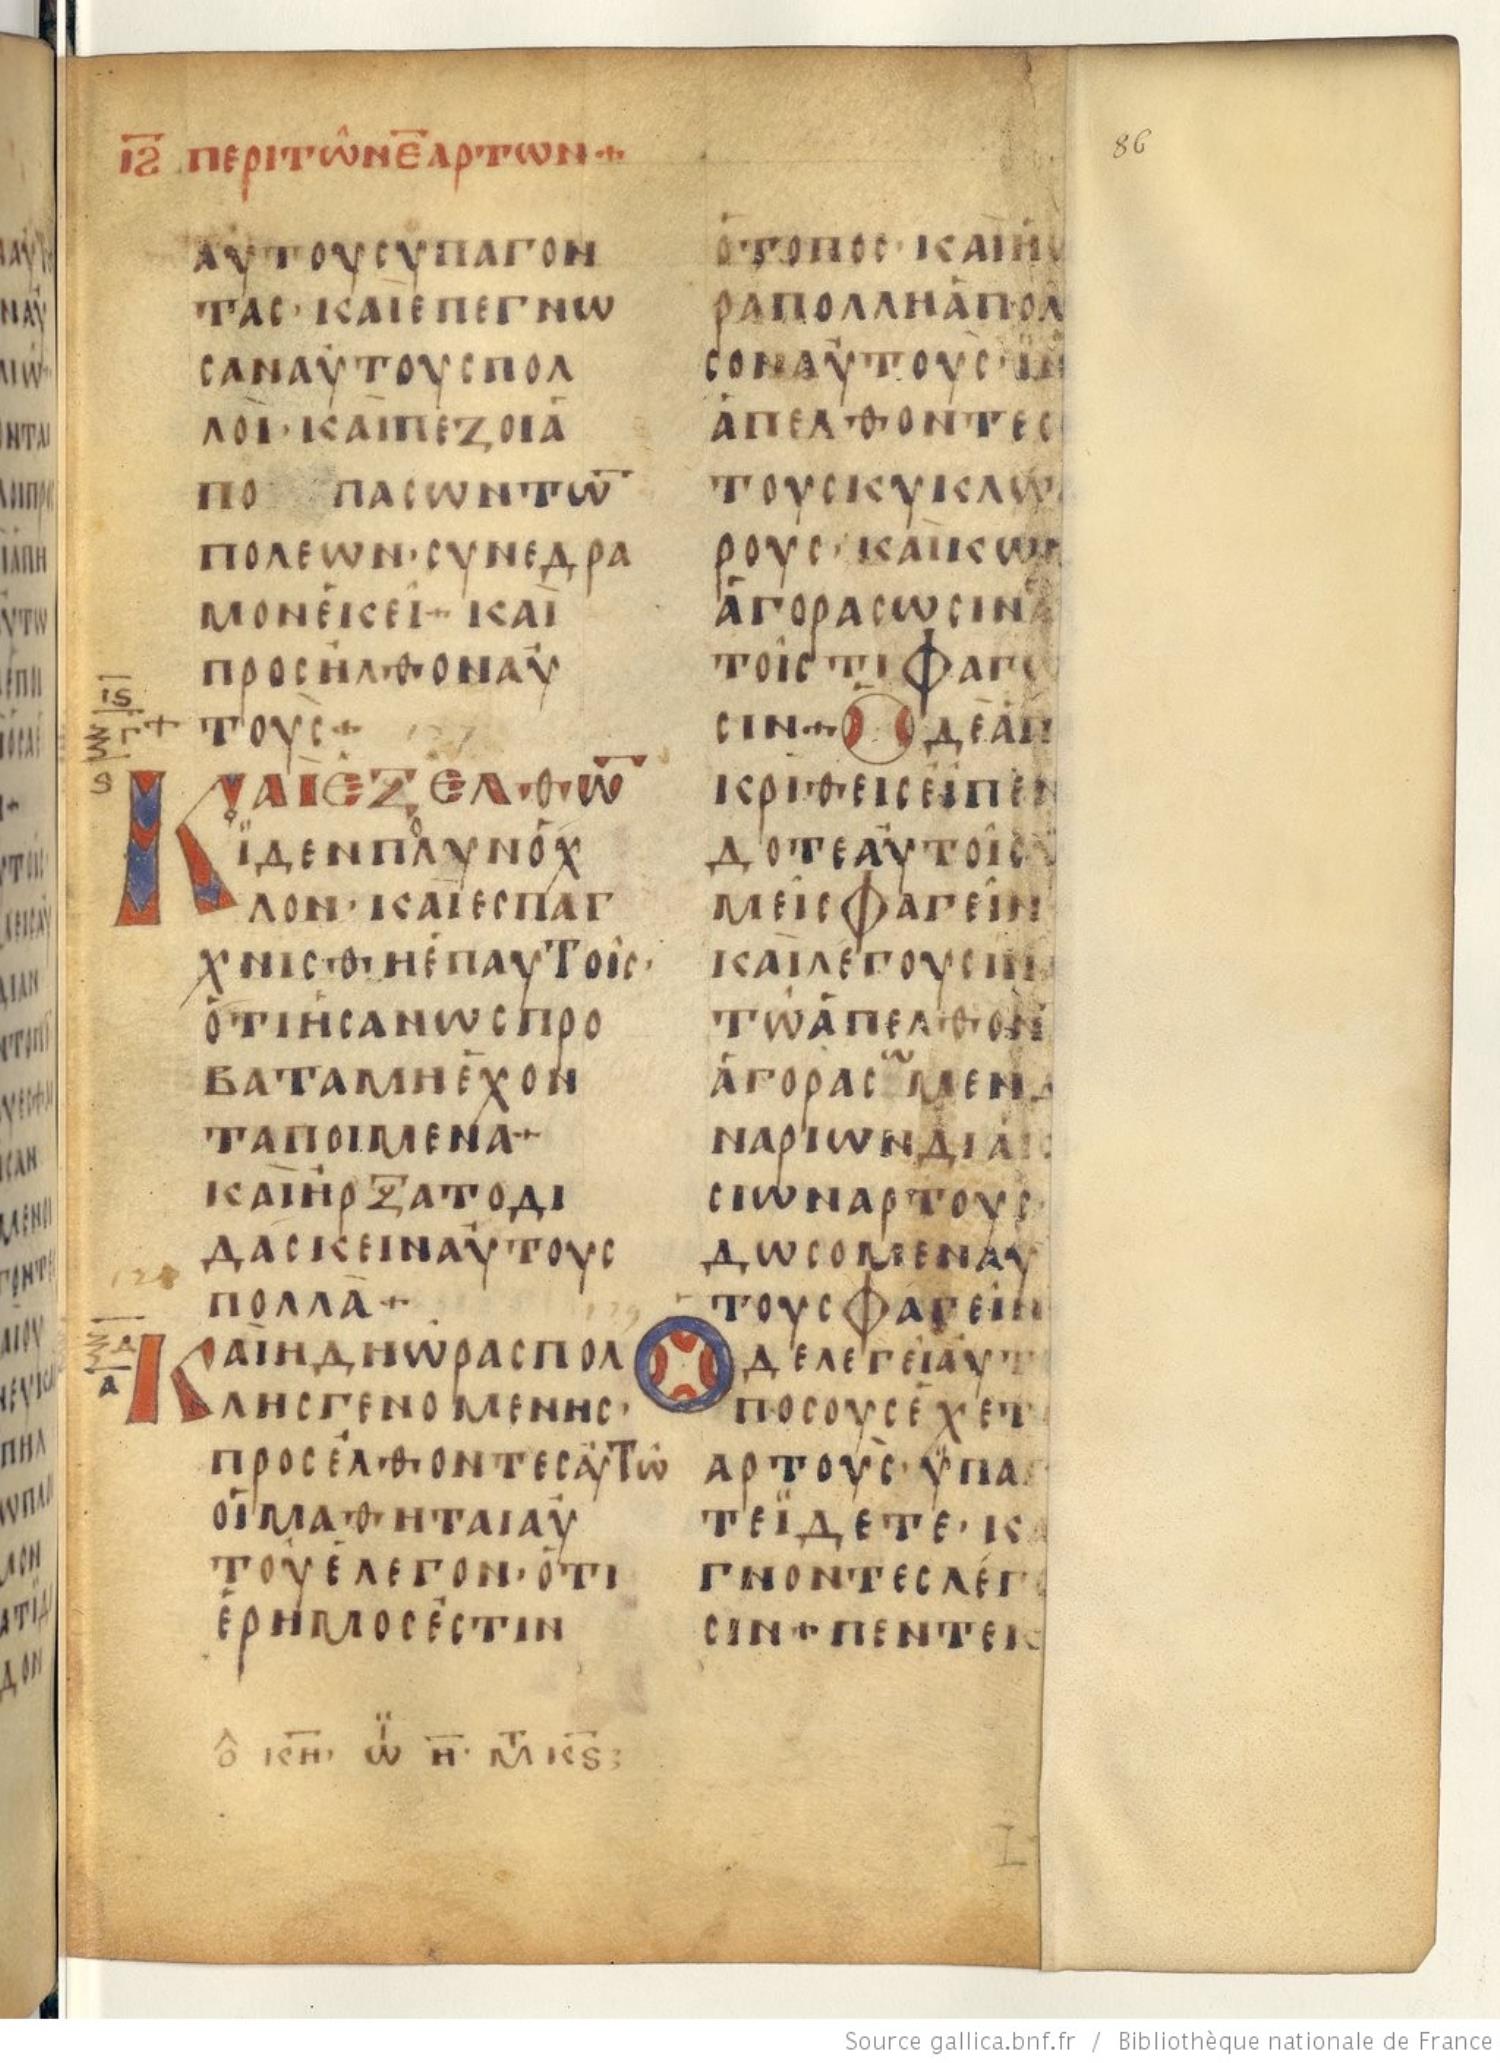 ις περιτῶνε̅αρτων+
86
αὐτουσυπαγον
τας· καιεπεγνω
σαναὐτουσπολ
λοὶ· καὶπεζοιἀ
πο πασωντω̅
πολεων·συνεδρα
μονἐκεῖ+ καὶ
προσῆλθοναὐ
τοὺς+
Καὶἐξελθω̅
ϊδενπολυνὄχ
λον· καὶεσπαγ
χνισθηἐπαυτοῖς·
ὅτιἦσανωσπρο
βαταμηἔχον
ταποιμενα+
καὶἠρξατοδι
δασκειναὐτους
πολλὰ+
Καὶηδηὡρασπολ
λησγενομενης·
προσἐλθοντεσαὐτῶ
οἱμαθηταιαὐ
τοῦἐλεγον·ὅτι
ἐρημοσἐστιν
ὁτοπος· καὶἡ
ραπολληἀπολ
σοναὐτοὺς·ἱν
ἀπελθοντες
τουσκυκλω
ρους· καὶκωμ
ἀγορασωσιν
τοῖστιφαγω
σιν+Οδεἀπ
κριθεισεἶπεν
δοτεαὐτοῖσὑ
μεῖσφαγεῖν
καὶλέγουσιν
τῶἀπελθον
ἀγορασωμεν
ναριωνδια
σιωναρτους·
δωσομεναυ
τουσφαγεῖν
Οδελεγειἀυτ
ποσουσἐχετ
αρτοὺς·ὑπαγ
τεϊδετε· κα
γνοντεσλέγο
σιν+πεντεκ
ὁ κη· ιω η· μ κς;